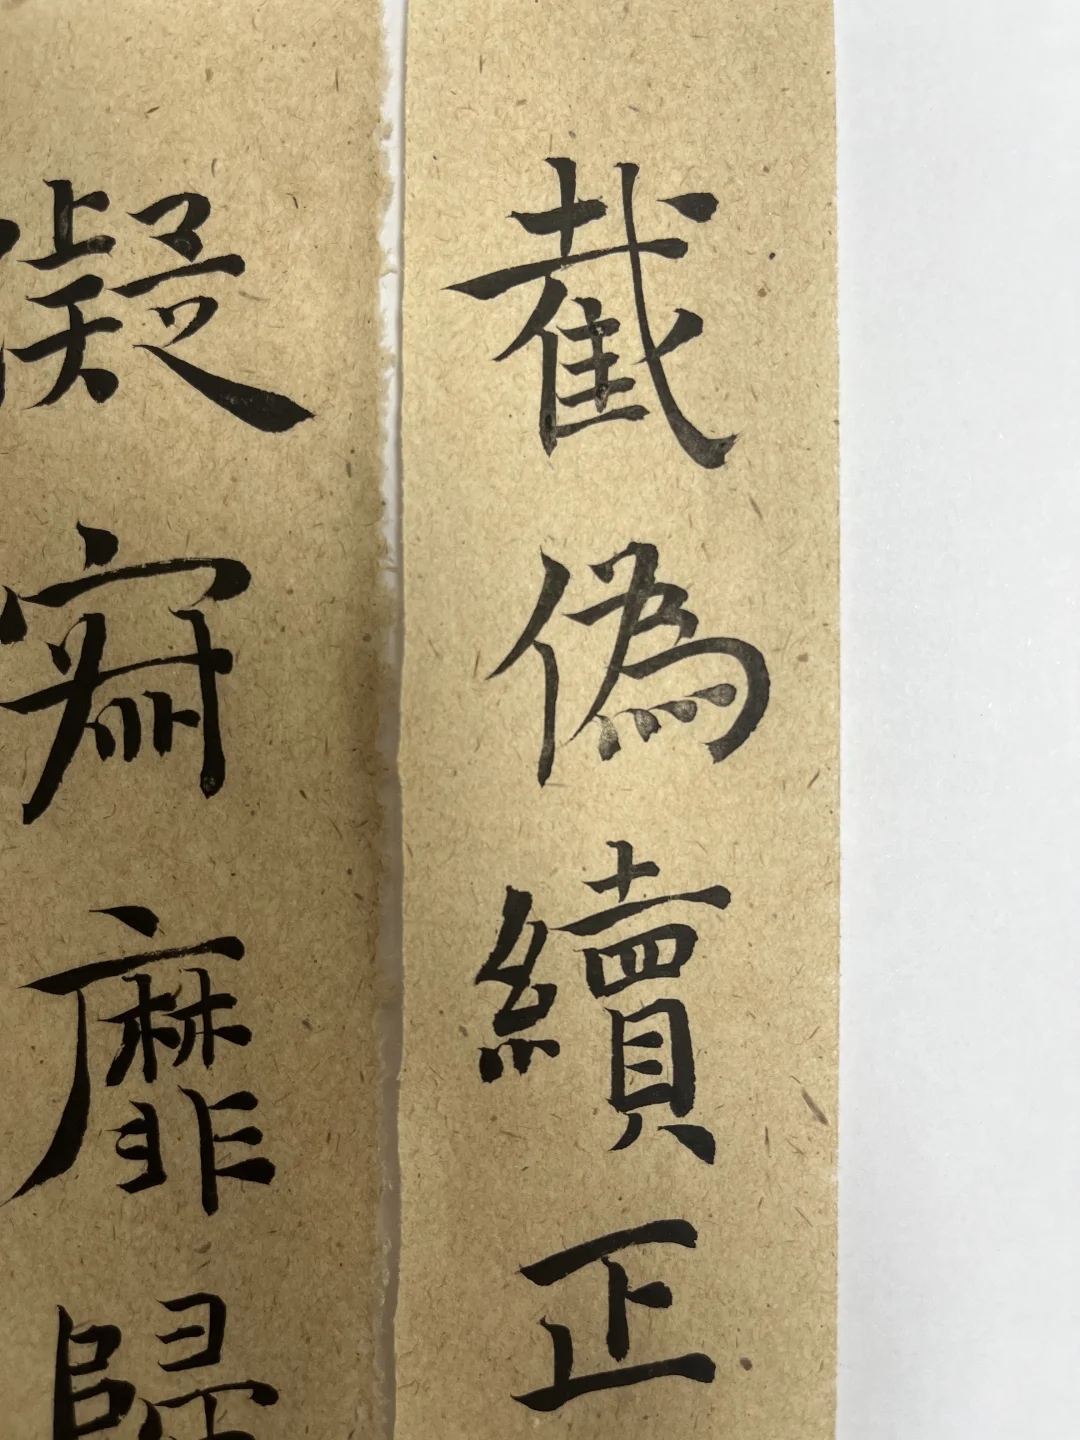 截偽續正
凝靡歸